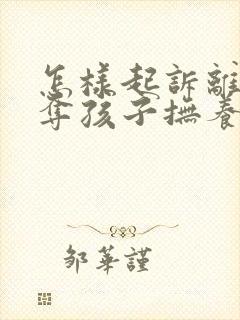 怎樣起訴離
奪孩子撫養
鄒華謹